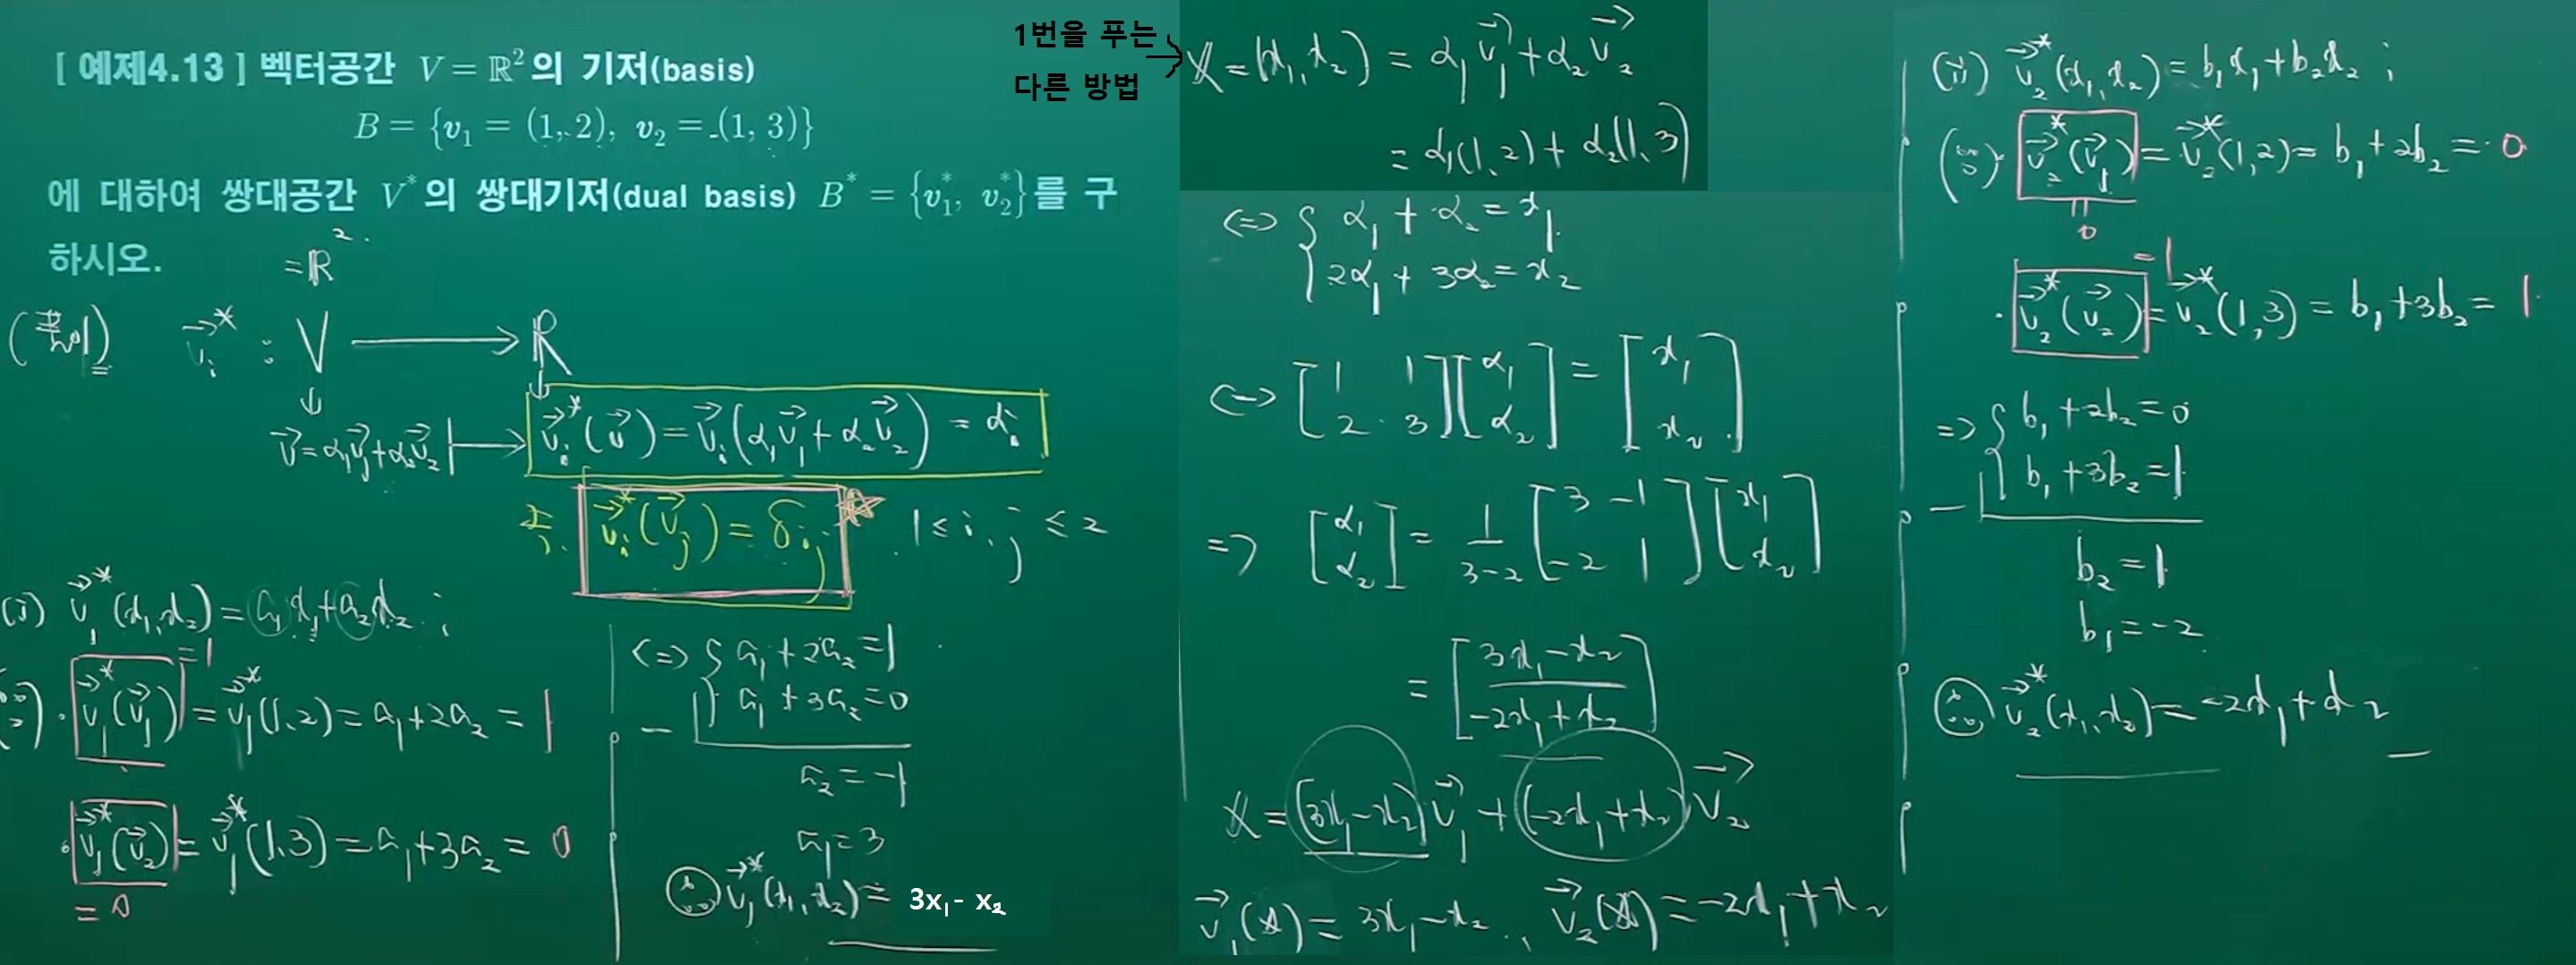 [ 예제4.13 ] 벡터공간 V = ℝ² 의 기저(basis)
B = {v₁ = (1, 2), v₂ = (1, 3)}
에 대하여 쌍대공간 V* 의 쌍대기저(dual basis) B* = {v₁*, v₂*}를 구
하시오.
= ℝ²
(풀이) v⃗ᵢ* : V ⟶ ℝ
v⃗ = α₁v⃗₁ + α₂v⃗₂ ⟼ v⃗ᵢ*(v⃗) = v⃗ᵢ(α₁v⃗₁ + α₂v⃗₂) = αᵢ
v⃗ᵢ*(v⃗ⱼ) = δᵢⱼ ☆ 1 ≤ i, j ≤ 2
(i) v⃗₁*(x₁, x₂) = a₁x₁ + a₂x₂ ;
(∵) · v⃗₁*(v⃗₁) = v⃗₁*(1, 2) = a₁ + 2a₂ = 1
= 1
· v⃗₁*(v⃗₂) = v⃗₁*(1, 3) = a₁ + 3a₂ = 0
= 0
⟺ { a₁ + 2a₂ = 1
a₁ + 3a₂ = 0
−
a₂ = −1
a₁ = 3
∴ v⃗₁*(x₁, x₂) = 3x₁ - x₂
1번을 푸는
다른 방법
→ 𝕏 = (x₁, x₂) = α₁v⃗₁ + α₂v⃗₂
= α₁(1, 2) + α₂(1, 3)
⟺ { α₁ + α₂ = x₁
2α₁ + 3α₂ = x₂
⟺ [1 1; 2 3][α₁; α₂] = [x₁; x₂]
⟹ [α₁; α₂] = 1/(3−2) [3 −1; −2 1][x₁; x₂]
= [3x₁ − x₂; −2x₁ + x₂]
𝕏 = (3x₁ − x₂)v⃗₁ + (−2x₁ + x₂)v⃗₂
v⃗₁(𝕏) = 3x₁ − x₂ , v⃗₂(𝕏) = −2x₁ + x₂
(ii) v⃗₂*(x₁, x₂) = b₁x₁ + b₂x₂ ;
(∵) · v⃗₂*(v⃗₁) = v⃗₂*(1, 2) = b₁ + 2b₂ = 0
= 0
= 1
· v⃗₂*(v⃗₂) = v⃗₂*(1, 3) = b₁ + 3b₂ = 1
⟹ { b₁ + 2b₂ = 0
b₁ + 3b₂ = 1
−
b₂ = 1
b₁ = −2
∴ v⃗₂*(x₁, x₂) = −2x₁ + x₂